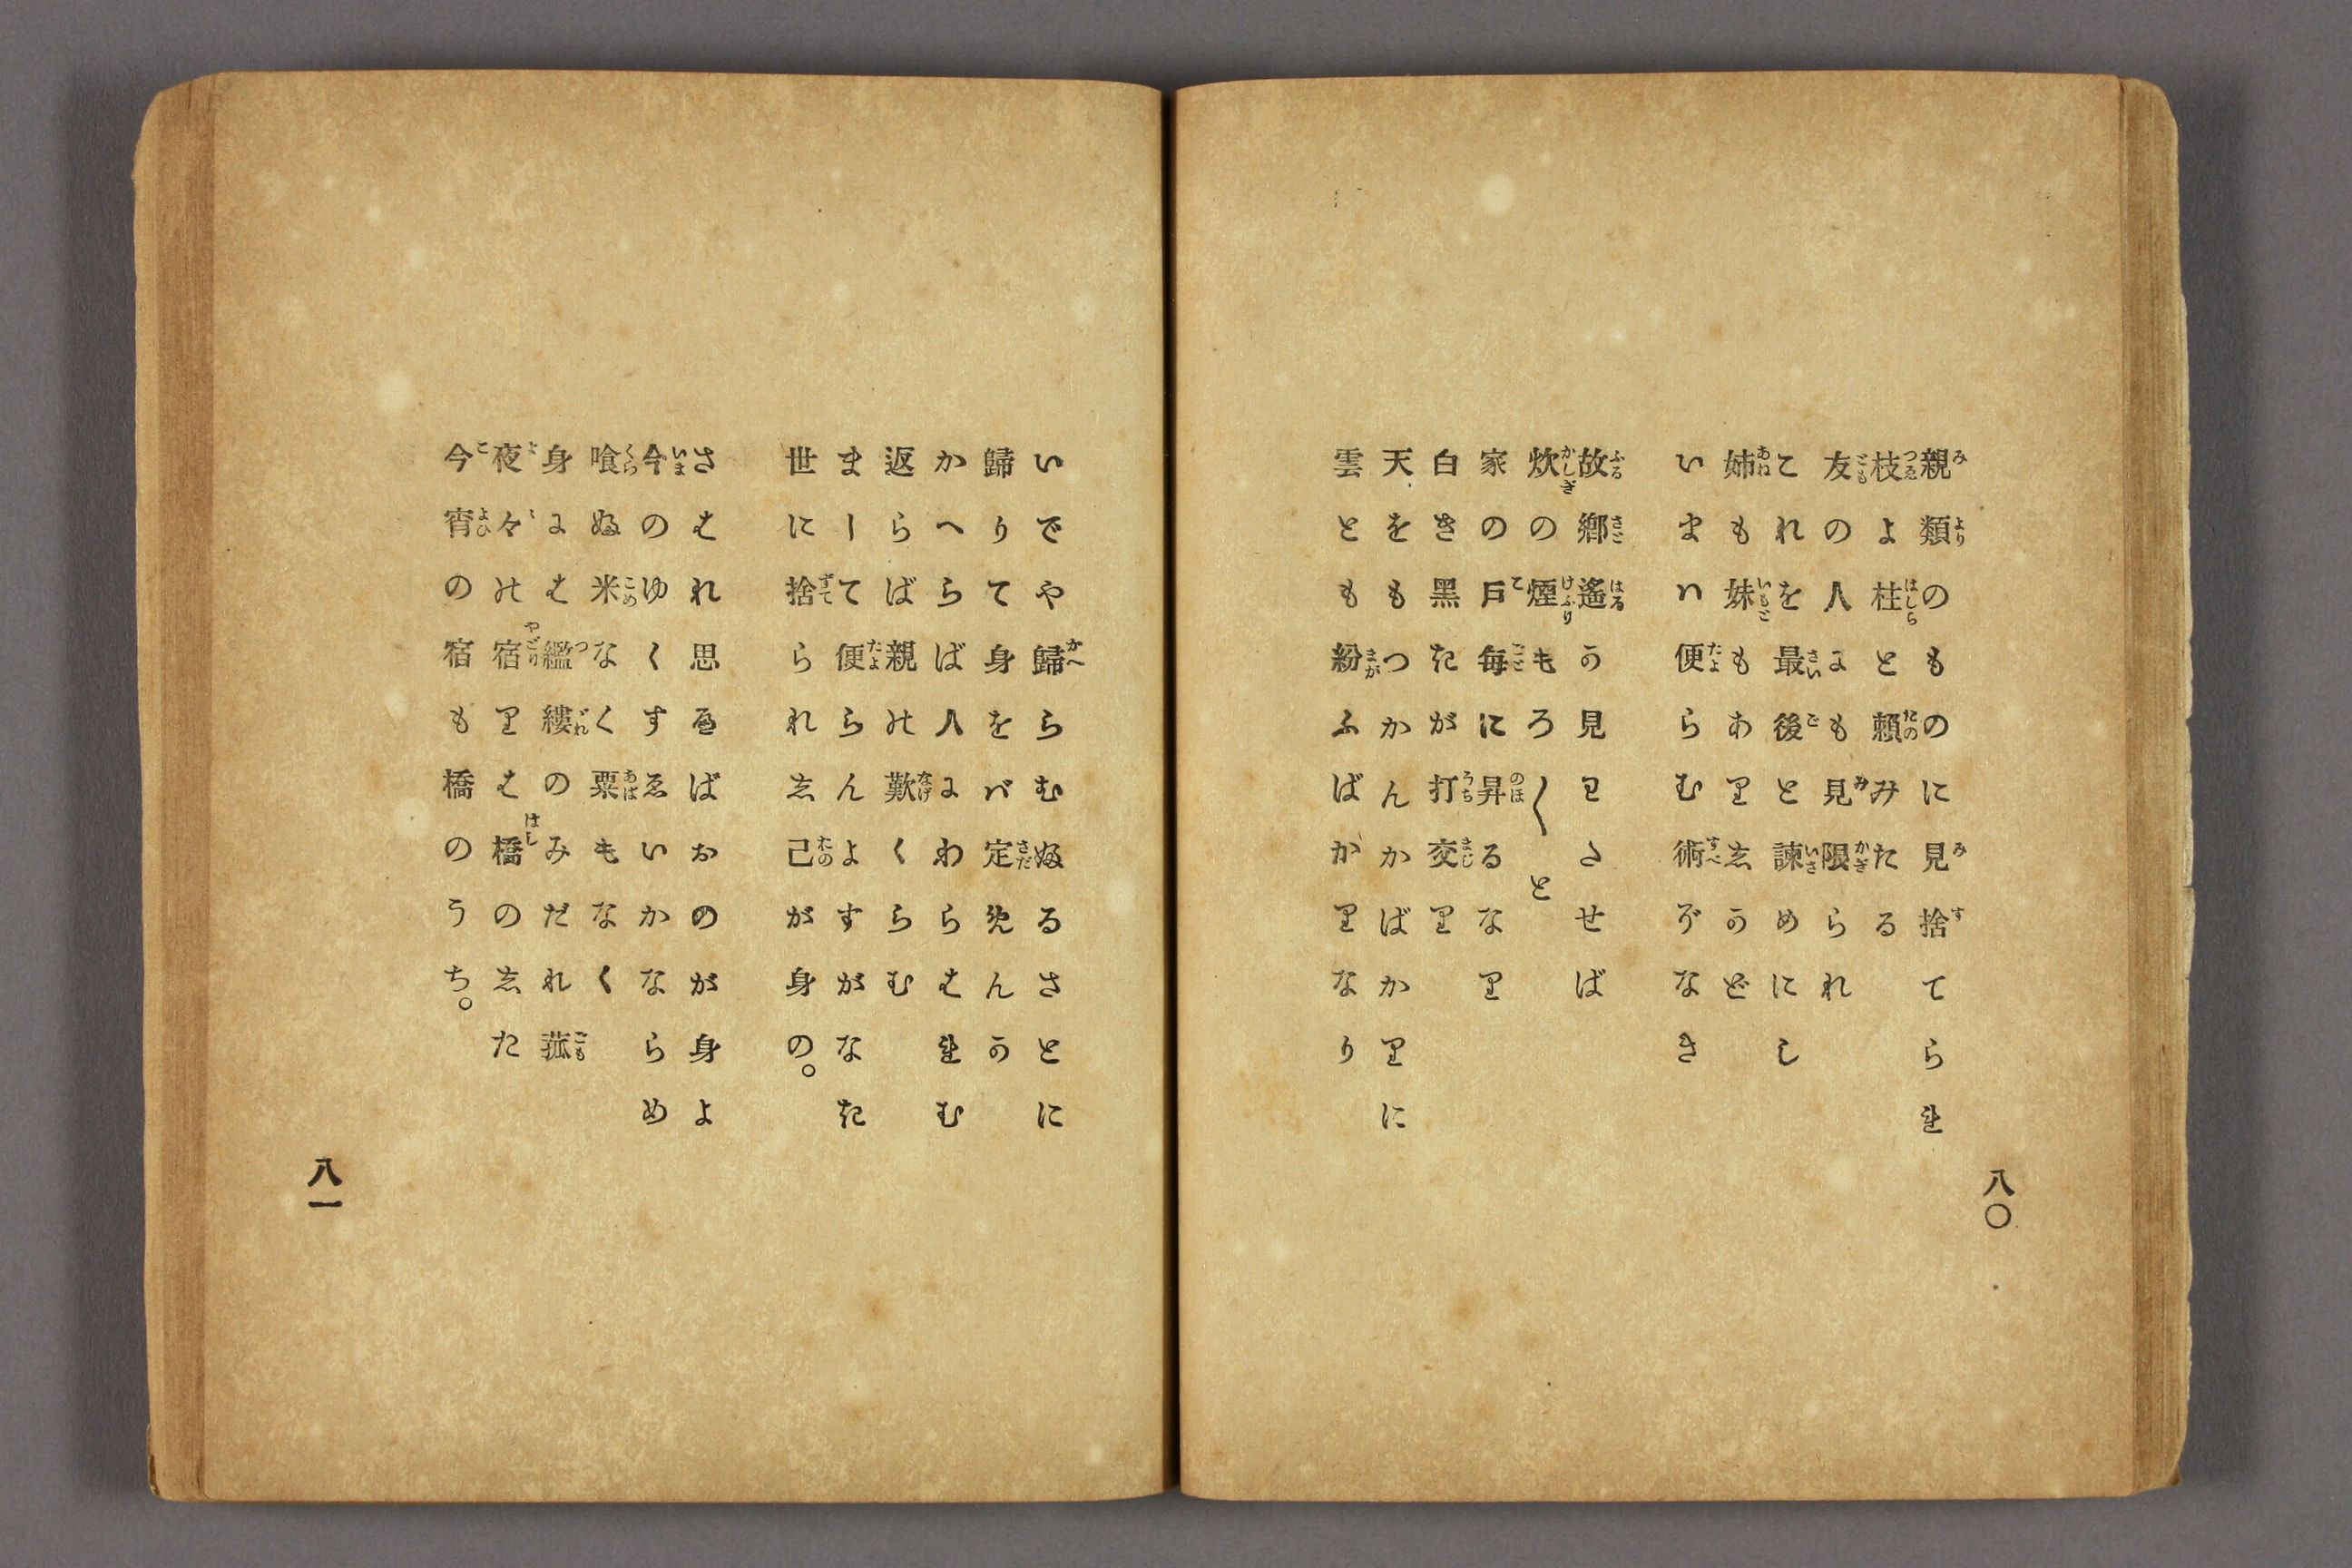 親類のものに見捨てられ
枝よ柱と頼みたる
友の人にも見限られ
これを最後と諫めにし
姉も妹もありしかど
いまは便らむ術ぞなき
故郷遙か見わたせば
炊の煙もろ〱と
家の戸毎に昇るなり
白き黒きが打交り
天をもつかんかばかりに
雲とも紛ふばかりなり
八〇
いでや歸らむふるさとに
歸りて身をバ定めんか
かへらば人にわらはれむ
返らば親の歎くらむ
まして便らんよすがなき
世に捨られし己が身の。
さはれ思へばおのが身よ
今のゆくすゑいかならめ
喰ふ米なく粟もなく
身には繿縷のみだれ菰
夜々の宿りは橋のした
今宵の宿も橋のうち。
八一